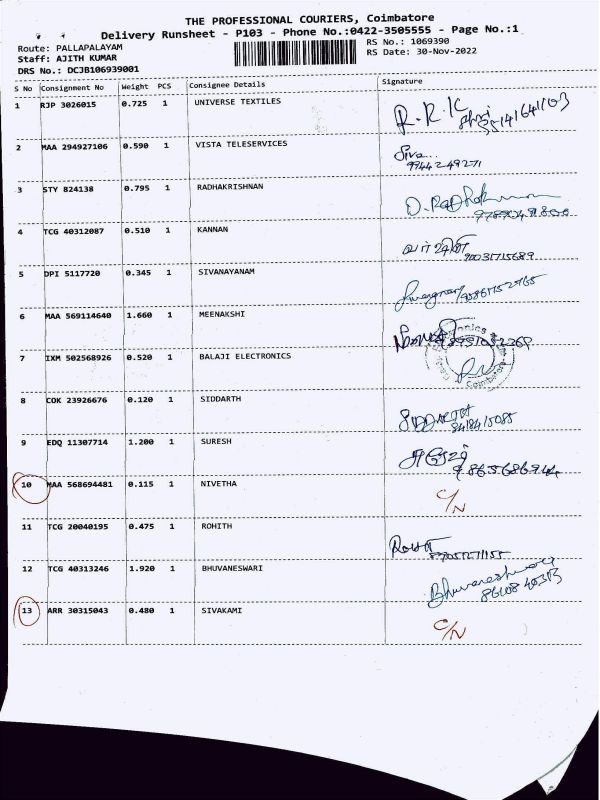 THE PROFESSIONAL COURIERS, Coimbatore
Delivery Runsheet - P103 - Phone No.:0422-3505555 - Page No.:1
Route: PALLAPALAYAM
Staff: AJITH KUMAR
DRS No.: DCJB106939001
RS No.: 1069390
RS Date: 30-Nov-2022
S No Consignment No Weight PCS Consignee Details Signature
1 RJP 3026015 0.725 1 UNIVERSE TEXTILES R.R.K
2 MAA 294927106 0.590 1 VISTA TELESERVICES Siva...
9944249271
3 STY 824138 0.795 1 RADHAKRISHNAN
4 TCG 40312087 0.510 1 KANNAN
90031715689
5 DPI 5117720 0.345 1 SIVANAYANAM
6 MAA 569114640 1.660 1 MEENAKSHI
7 IXM 502568926 0.520 1 BALAJI ELECTRONICS
Coimbatore
8 COK 23926676 0.120 1 SIDDARTH SIDDARTH
8418415085
9 EDQ 11307714 1.200 1 SURESH
10 MAA 568694481 0.115 1 NIVETHA C/N
11 TCG 20040195 0.475 1 ROHITH Rohit
12 TCG 40313246 1.920 1 BHUVANESWARI Bhuvaneshwari
13 ARR 30315043 0.480 1 SIVAKAMI C/N